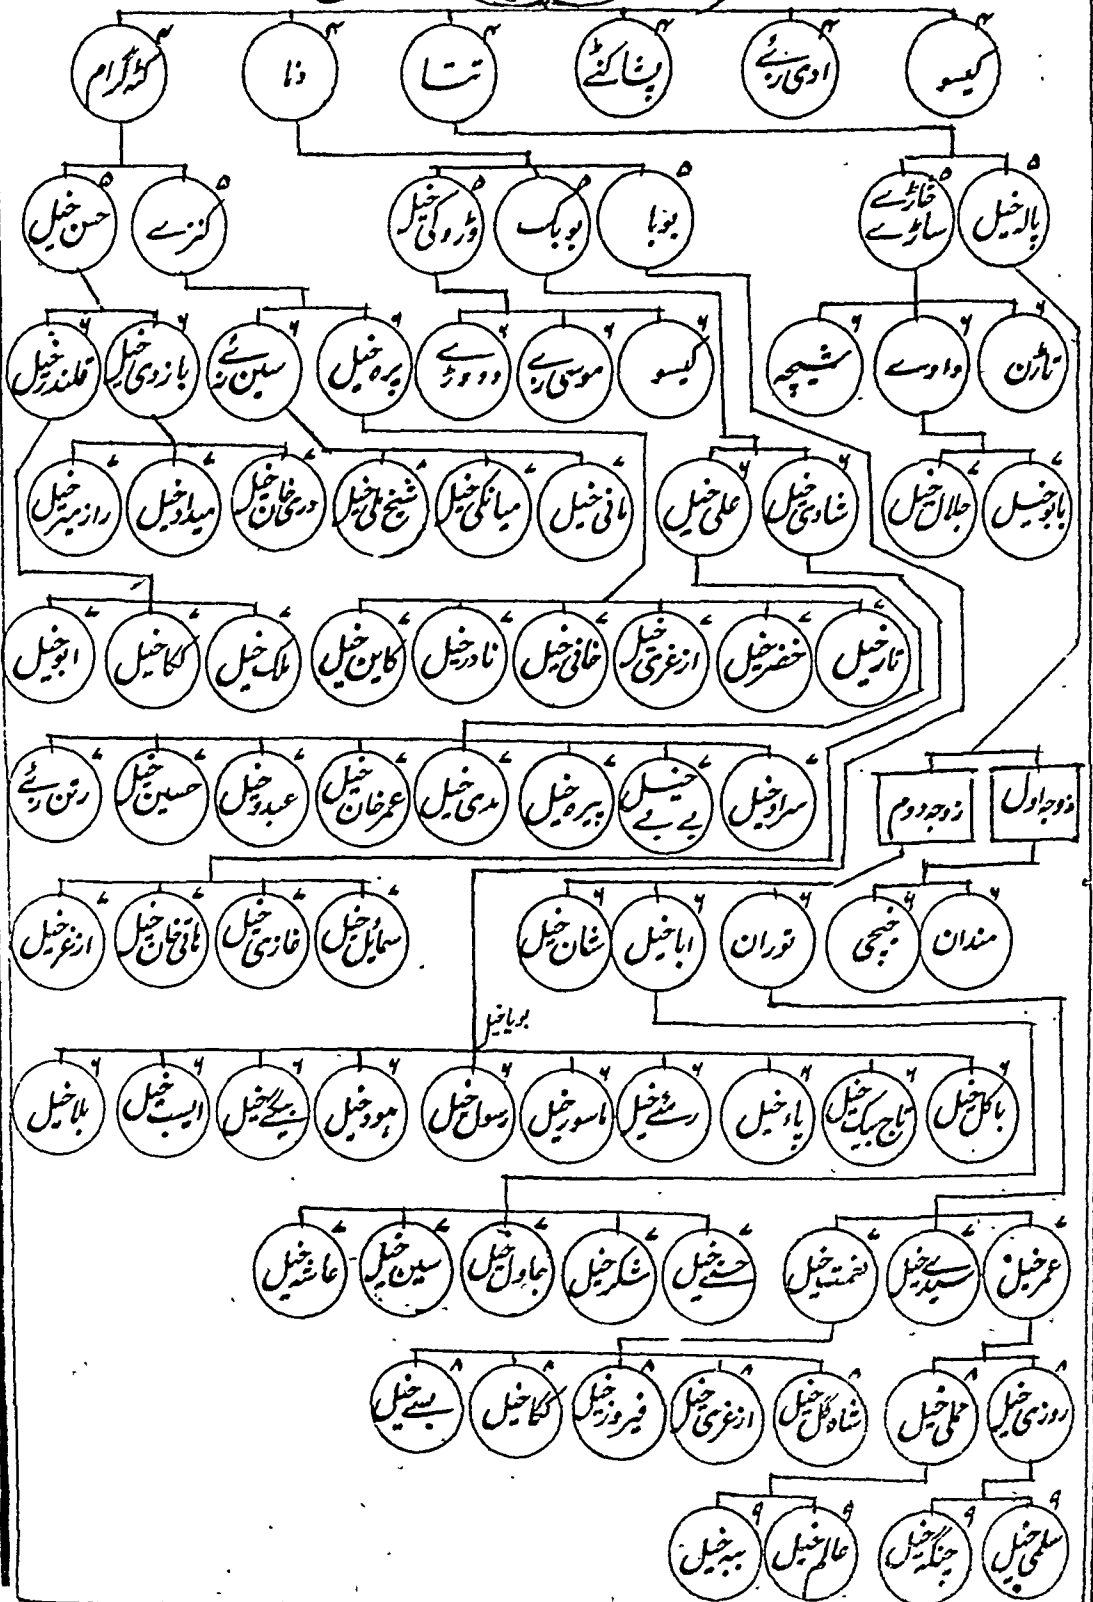 ۴ کیسو ۴ ادی زئے ۴ پشاکنڑے ۴ تتا ۴ دنا ۴ کٹہ گرام
۵ پالہ خیل ۵ خاڑے ساڑے ۵ بوبا ۵ بوبک ۵ وڑوکی خیل ۵ کنزے ۵ حسن خیل
۶ تاڑن ۶ داودے ۶ شمیچہ ۶ کیسو ۶ موسی زے ۶ دودوڑے ۶ پرہ خیل ۶ سین زئے ۶ بازدی خیل ۶ قلندر خیل
۷ بابو خیل ۷ جلال خیل ۶ شادی خیل ۶ علی خیل ۷ مانی خیل ۷ میانکی خیل ۸ شیخ ملی خیل ۷ دری خان خیل ۷ میداد خیل ۷ رازمیر خیل
۷ تار خیل ۷ خضر خیل ۷ ازغری خیل ۷ خانی خیل ۷ نادر خیل ۷ کابین خیل ۷ ملک خیل ۷ ککا خیل ۷ ابو خیل
زوجہ اول زوجہ دوم ۷ سراد خیل ۷ بے بے خیل ۷ پیرہ خیل ۷ مدی خیل ۷ عمر خان خیل ۷ عبدو خیل ۷ حسین خیل ۷ رتن زئے
۶ مندان ۶ خچی ۶ توران ۶ ابا خیل ۶ شان خیل ۷ سمایل خیل ۷ غازی خیل ۷ ہاتی خان خیل ۷ ازغر خیل
بوبا خیل
۶ باکل خیل ۶ تاج بیک خیل ۶ پاء خیل ۶ رستے خیل ۶ ماسور خیل ۶ رسول خیل ۶ ہود خیل ۶ بیگے خیل ۶ ایسب خیل ۶ بلا خیل
۷ عمر خیل ۷ سیدے خیل ۷ نعمت خیل ۷ حسنے خیل ۷ شکر خیل ۷ جاول خیل ۷ سین خیل ۷ عاشہ خیل
۸ روزی خیل ۸ ملی خیل ۸ شاہ گل خیل ۸ ازغری خیل ۸ فیروز خیل ۸ ککا خیل ۸ بسے خیل
۹ سلمی خیل ۹ چنگہ خیل ۹ عالم خیل ۹ ببہ خیل